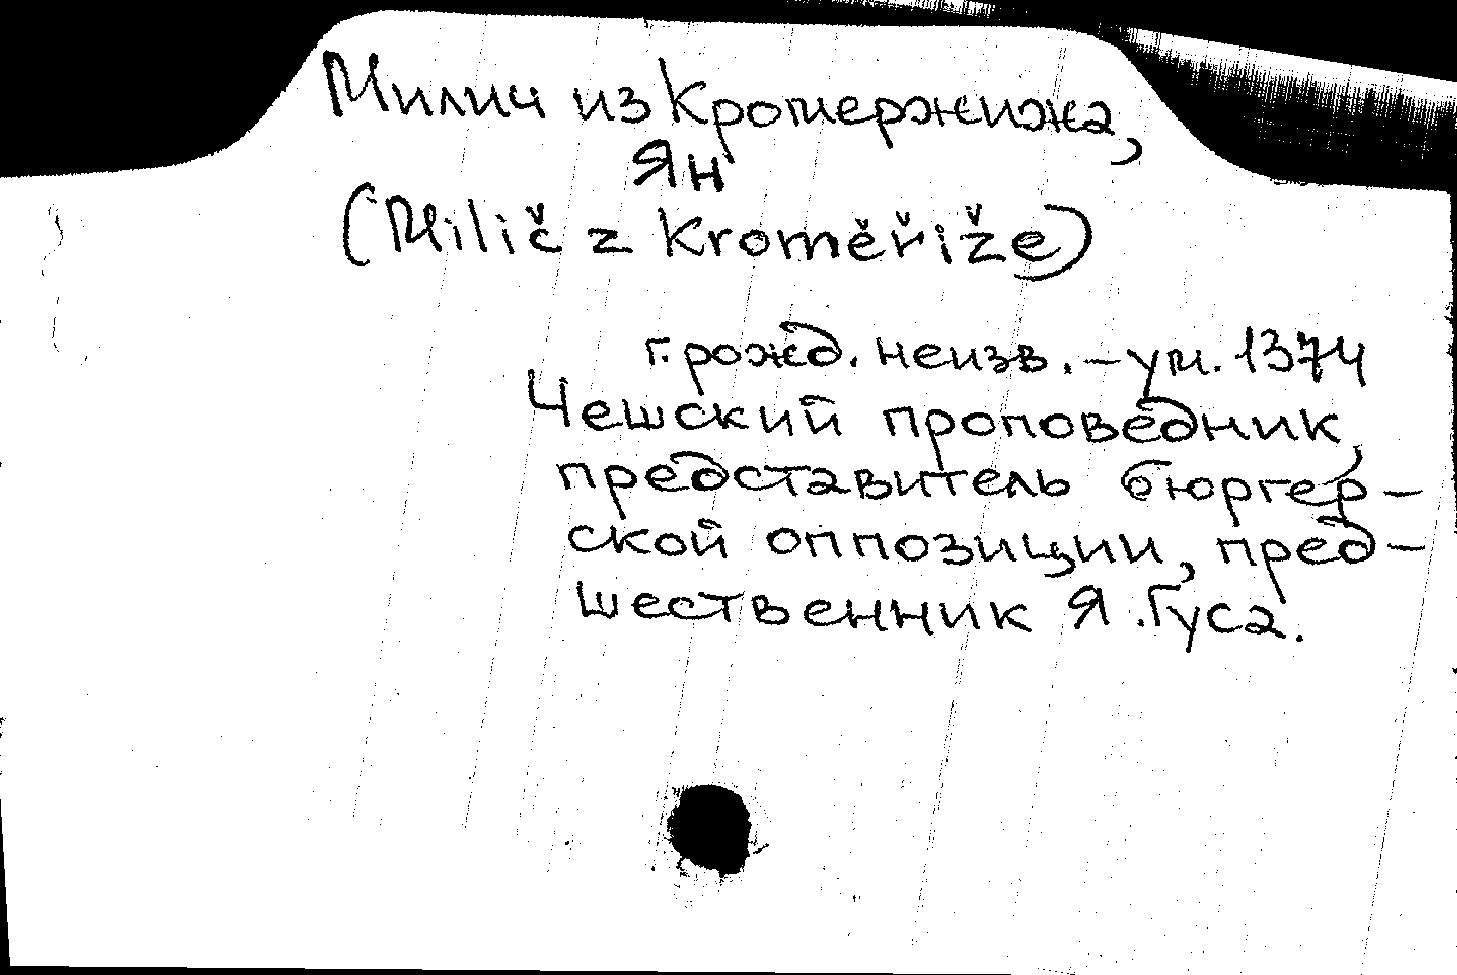 Милич из Кромержижа,
Ян
(Milič z Kroměřiže)
г. рожд. неизв. – ум. 1374
Чешский проповедник,
представитель бюргер-
ской оппозиции, пред-
шественник Я. Гуса.